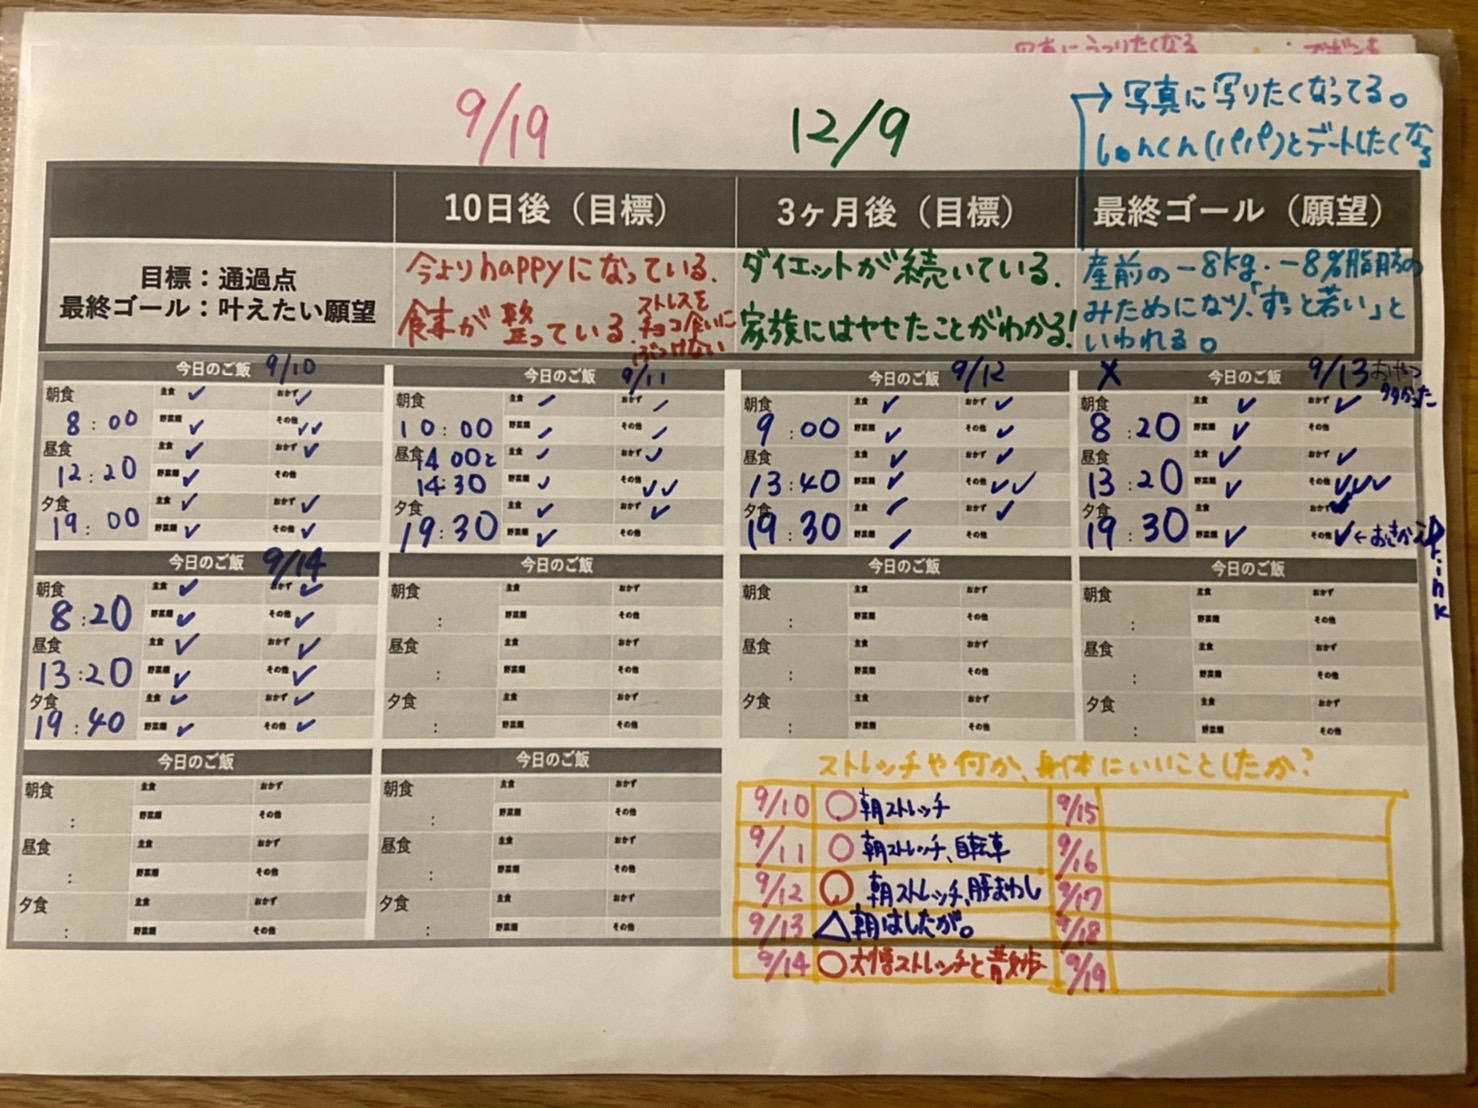 写真にうつりたくなる
9/19
12/9
→写真に写りたくなってる。
(パパ)とデートしたくなる
10日後（目標）
3ヶ月後（目標）
最終ゴール（願望）
目標：通過点
最終ゴール：叶えたい願望
今よりhappyになっている.
食事が整っている.
ストレスを
チョコ食いに
ぶつけない
ダイエットが続いている.
家族にはやせたことがわかる!
産前の-8kg.-8%脂肪の
みためになり、「ずっと若い」と
いわれる。
今日のご飯 9/10
朝食 主食 ✓ おかず ✓
8:00 野菜類 ✓ その他 ✓✓
昼食 主食 ✓ おかず ✓
12:20 野菜類 ✓ その他
夕食 主食 ✓ おかず ✓
19:00 野菜類 ✓ その他 ✓
今日のご飯 9/11
朝食 主食 ✓ おかず ✓
10:00 野菜類 ✓ その他 ✓
昼食 14:00と 主食 ✓ おかず ✓
14:30 野菜類 ✓ その他 ✓✓
夕食 主食 ✓ おかず ✓
19:30 野菜類 ✓ その他
今日のご飯 9/12
朝食 主食 ✓ おかず ✓
9:00 野菜類 ✓ その他 ✓
昼食 主食 ✓ おかず ✓
13:40 野菜類 ✓ その他 ✓✓
夕食 主食 ✓ おかず ✓
19:30 野菜類 ✓ その他
X 今日のご飯 9/13 おやつ
多かった
朝食 主食 ✓ おかず ✓
8:20 野菜類 ✓ その他
昼食 主食 ✓ おかず ✓
13:20 野菜類 ✓ その他 ✓✓✓
夕食 主食 おかず ✓
19:30 野菜類 ✓ その他 ✓←
Drink
今日のご飯 9/14
朝食 主食 ✓ おかず ✓
8:20 野菜類 ✓ その他 ✓
昼食 主食 ✓ おかず ✓
13:20 野菜類 ✓ その他 ✓
夕食 主食 ✓ おかず ✓
19:40 野菜類 ✓ その他 ✓
今日のご飯
朝食 主食 おかず
: 野菜類 その他
昼食 主食 おかず
: 野菜類 その他
夕食 主食 おかず
: 野菜類 その他
今日のご飯
朝食 主食 おかず
: 野菜類 その他
昼食 主食 おかず
: 野菜類 その他
夕食 主食 おかず
: 野菜類 その他
今日のご飯
朝食 主食 おかず
: 野菜類 その他
昼食 主食 おかず
: 野菜類 その他
夕食 主食 おかず
: 野菜類 その他
今日のご飯
朝食 主食 おかず
: 野菜類 その他
昼食 主食 おかず
: 野菜類 その他
夕食 主食 おかず
: 野菜類 その他
今日のご飯
朝食 主食 おかず
: 野菜類 その他
昼食 主食 おかず
: 野菜類 その他
夕食 主食 おかず
: 野菜類 その他
ストレッチや何か、身体にいいことしたか?
9/10 ○朝ストレッチ 9/15
9/11 ○朝ストレッチ、自転車 9/16
9/12 ○朝ストレッチ、肝まわし 9/17
9/13 △朝はしたが。 9/18
9/14 ○ストレッチと散歩 9/19